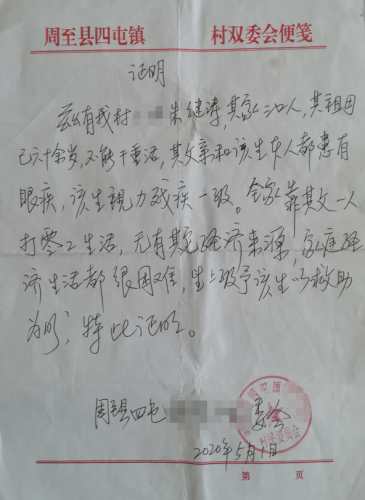 周至县四屯镇 村双委会便笺
证明
兹有我村 朱继涛,其家三口人,其祖母
已六十余岁,不能干重活,其父亲和该生本人都患有
眼疾,该生视力残疾一级。全家靠其父一人
打零工生活,无有其它经济来源,家庭经
济生活都很困难,望上级予该生以救助
为盼,特此证明。
周至县四屯 委会
2020年5月1日
村民委员会
第 页